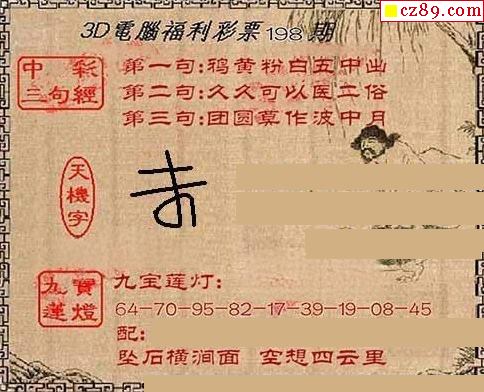 cz89.com
3D電腦福利彩票198期
中彩
三句經
第一句:鹅黄粉白五中出
第二句:久久可以医二俗
第三句:团圆莫作波中月
天機字
九寶
蓮燈
九宝莲灯:
64-70-95-82-17-39-19-08-45
配:
坠石横涧面 空想四云里